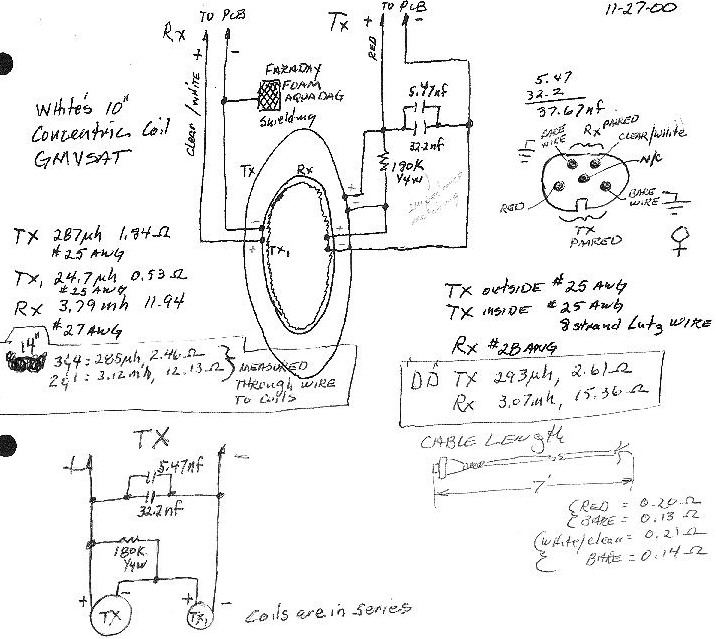 11-27-00
TO PCB
Rx + -
TO PCB
Tx + -
RED
CLEAR/WHITE
FARADAY
FOAM
AQUADAG
Shielding
WHITE'S 10"
CONCENTRIC COIL
GMVSAT
5.47nf
32.2nf
180K
1/4W
Tx
Rx
TX1
+
-
+
-
-
+
5.47
32.2
37.67nf
BARE
WIRE
Rx PAIRED
CLEAR/White
N/C
RED
BARE
WIRE
TX
PAIRED
TX 287µh 1.84Ω
#25 AWG
TX1 24.7µh 0.53Ω
#25 AWG
Rx 3.79mh 11.94
#27 AWG
14"
3&4 = 285µh, 2.46Ω
2&1 = 3.12mh, 12.13Ω
MEASURED
THROUGH WIRE
TO COILS
TX OUTSIDE #25 AWG
TX INSIDE #25 AWG
8 strand Lutz WIRE
Rx #28 AWG
DD TX 293µh, 2.61Ω
Rx 3.07mh, 15.36Ω
CABLE LENGTH
7'
RED = 0.20Ω
BARE = 0.13Ω
White/clear = 0.21Ω
BARE = 0.14Ω
TX
+ -
5.47nf
32.2nf
180K
1/4W
+ - + -
TX
TX1
Coils are in series